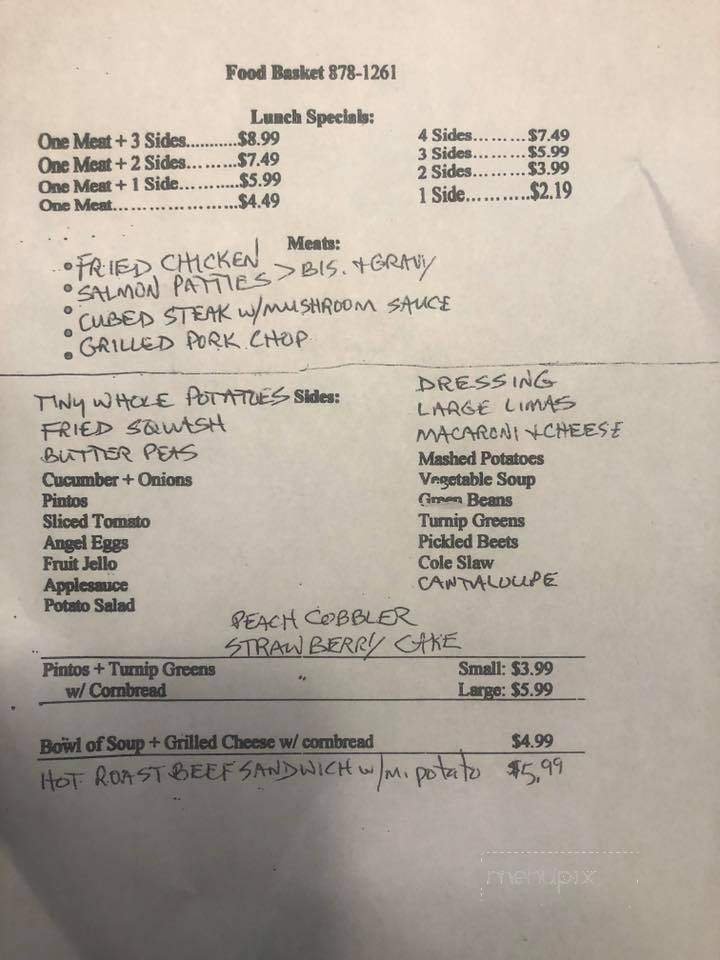 Food Basket 878-1261
Lunch Specials:
One Meat + 3 Sides...........$8.99
One Meat + 2 Sides.........$7.49
One Meat + 1 Side...........$5.99
One Meat.......................$4.49
4 Sides.........$7.49
3 Sides.........$5.99
2 Sides.........$3.99
1 Side...........$2.19
Meats:
• FRIED CHICKEN
• SALMON PATTIES > BIS. + GRAVY
• CUBED STEAK W/MUSHROOM SAUCE
• GRILLED PORK CHOP
Sides:
TINY WHOLE POTATOES
FRIED SQUASH
BUTTER PEAS
Cucumber + Onions
Pintos
Sliced Tomato
Angel Eggs
Fruit Jello
Applesauce
Potato Salad
DRESSING
LARGE LIMAS
MACARONI + CHEESE
Mashed Potatoes
Vegetable Soup
Green Beans
Turnip Greens
Pickled Beets
Cole Slaw
CANTALOUPE
PEACH COBBLER
STRAWBERRY CAKE
Pintos + Turnip Greens Small: $3.99
w/ Cornbread Large: $5.99
Bowl of Soup + Grilled Cheese w/ cornbread $4.99
HOT ROAST BEEF SANDWICH w/m. potato $5.99
menupix